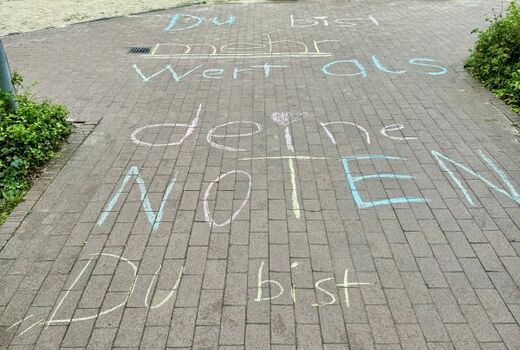 Du bist
mehr
Wert als
deine
NOTEN
Du bist